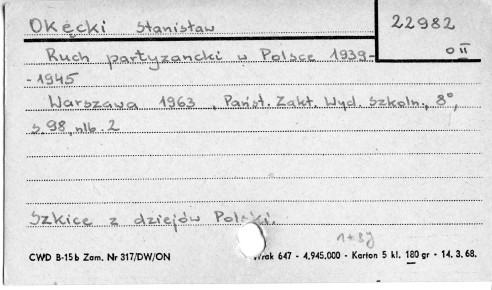 Okęcki Stanisław
22982
O II
Ruch partyzancki w Polsce 1939-
-1945
Warszawa 1963, Państ. Zakt. Wyd. Szkoln., 8°,
s. 98, nlb. 2
Szkice z dziejów Polski.
CWD B-15b Zam. Nr 317/DW/ON 647 - 4.945.000 - Karton 5 kl. 180 gr - 14. 3. 68.